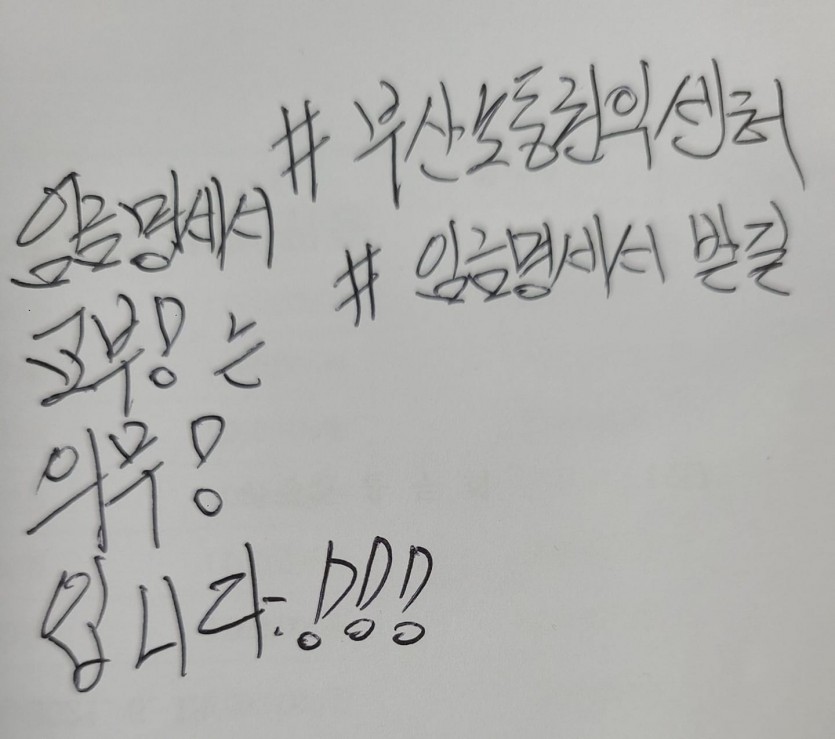 # 부산노동권익센터
# 임금명세서 발길
임금명세서
교부! 는
의무!
입니다!!!